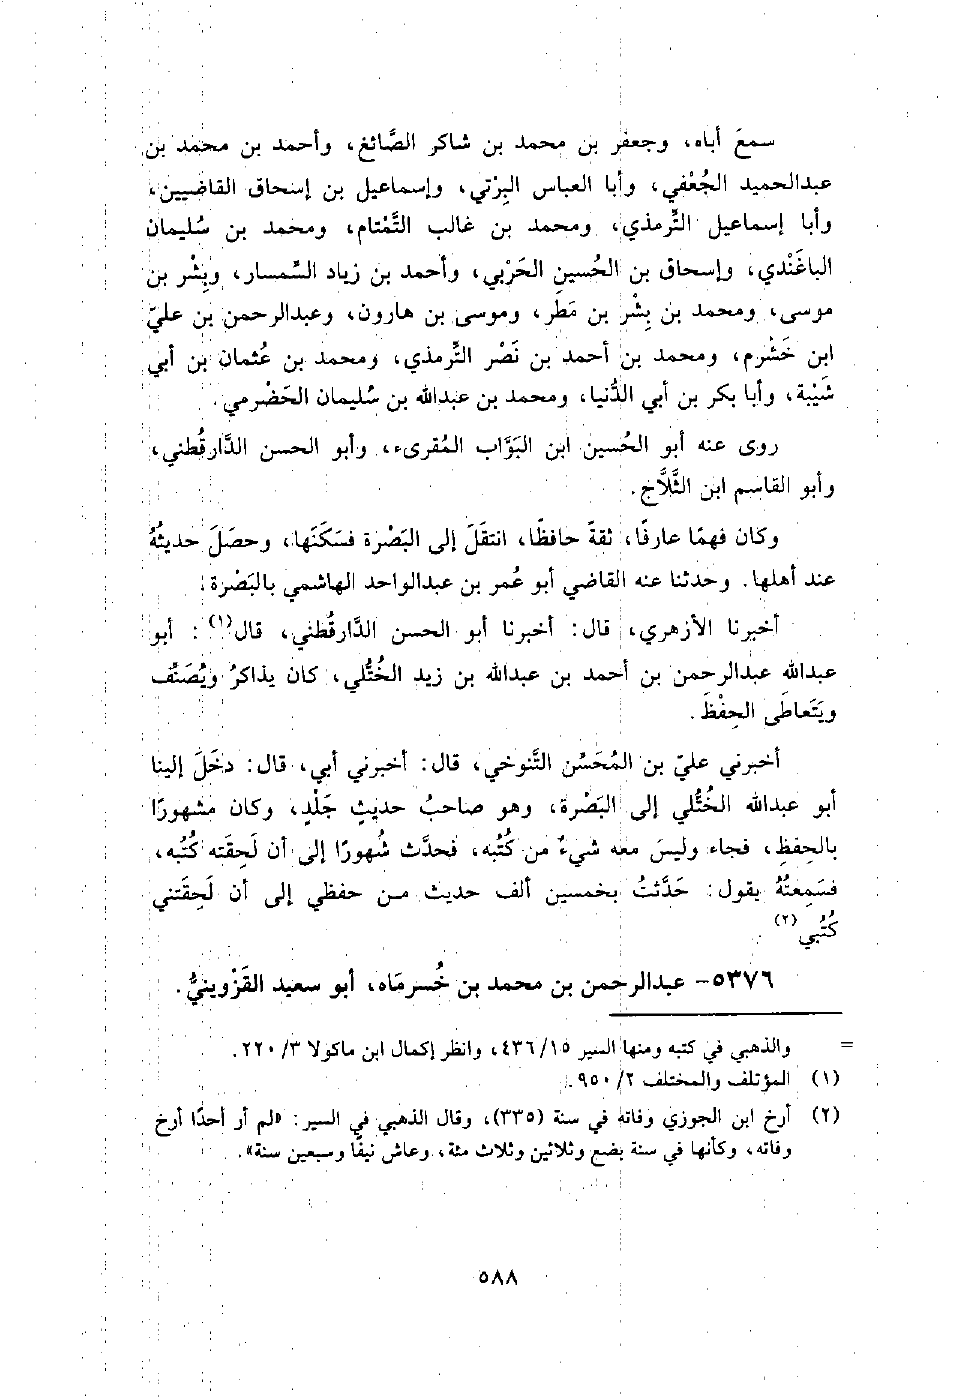 سمعَ أباه، وجعفر بن محمد بن شاكر الصَّائغ، وأحمد بن محمد بن
عبدالحميد الجُعْفي، وأبا العباس البِرْتي، وإسماعيل بن إسحاق القاضيين،
وأبا إسماعيل التِّرمذي، ومحمد بن غالب التَّمْتام، ومحمد بن سُليمان
الباغَنْدي، وإسحاق بن الحُسين الحَرْبي، وأحمد بن زياد السِّمسار، وبِشْر بن
موسى، ومحمد بن بِشْر بن مَطَر، وموسى بن هارون، وعبدالرحمن بن عليّ
ابن خَشْرم، ومحمد بن أحمد بن نَصْر التِّرمذي، ومحمد بن عُثمان بن أبي
شَيْبة، وأبا بكر بن أبي الدُّنيا، ومحمد بن عبدالله بن سُليمان الحَضْرمي.
روى عنه أبو الحُسين ابن البَوَّاب المُقرىء، وأبو الحسن الدَّارقُطني،
وأبو القاسم ابن الثَّلَّاج.
وكان فهمًا عارفًا، ثقةً حافظًا، انتقَلَ إلى البَصْرة فسَكَنَها، وحصَلَ حديثُهُ
عند أهلها. وحدثنا عنه القاضي أبو عُمر بن عبدالواحد الهاشمي بالبَصْرة.
أخبرنا الأزهري، قال: أخبرنا أبو الحسن الدَّارقُطني، قال(١): أبو
عبدالله عبدالرحمن بن أحمد بن عبدالله بن زيد الخُتُّلي، كان يذاكرُ ويُصَنِّف
ويَتَعاطَى الحِفْظَ.
أخبرني عليّ بن المُحَسِّن التَّنوخي، قال: أخبرني أبي، قال: دخَلَ إلينا
أبو عبدالله الخُتُّلي إلى البَصْرة، وهو صاحبُ حديثٍ جَلْدٍ، وكان مشهورًا
بالحِفظِ، فجاء وليسَ معه شيءٌ من كُتُبه، فحدَّث شُهورًا إلى أن لَحِقَته كُتُبه،
فسَمِعتُهُ يقول: حَدَّثتُ بخمسين ألف حديث من حفظي إلى أن لَحِقَتني
كُتُبي(٢).
٥٣٧٦- عبدالرحمن بن محمد بن خُسرمَاه، أبو سعيد القَزْوينيُّ.
= والذهبي في كتبه ومنها السير ١٥/ ٤٣٦، وانظر إكمال ابن ماكولا ٣/ ٢٢٠.
(١) المؤتلف والمختلف ٢/ ٩٥٠.
(٢) أرخ ابن الجوزي وفاته في سنة (٣٣٥)، وقال الذهبي في السير: «لم أر أحدًا أرخ
وفاته، وكأنها في سنة بضع وثلاثين وثلاث مئة، وعاش نيفًا وسبعين سنة».
٥٨٨